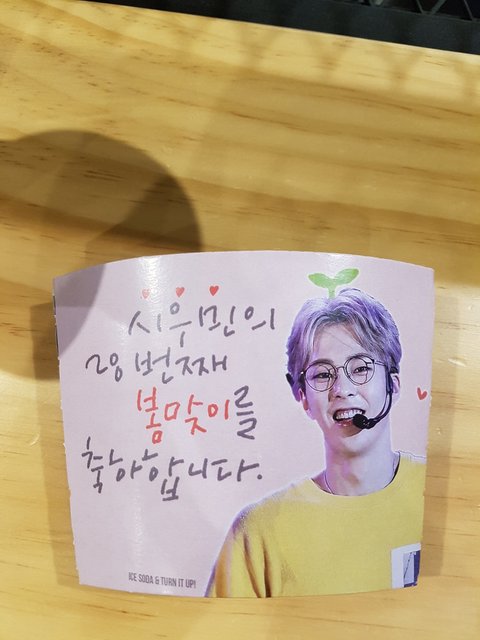 시우민의
29번째
봄맞이를
축하합니다.
ICE SODA & TURN IT UP!